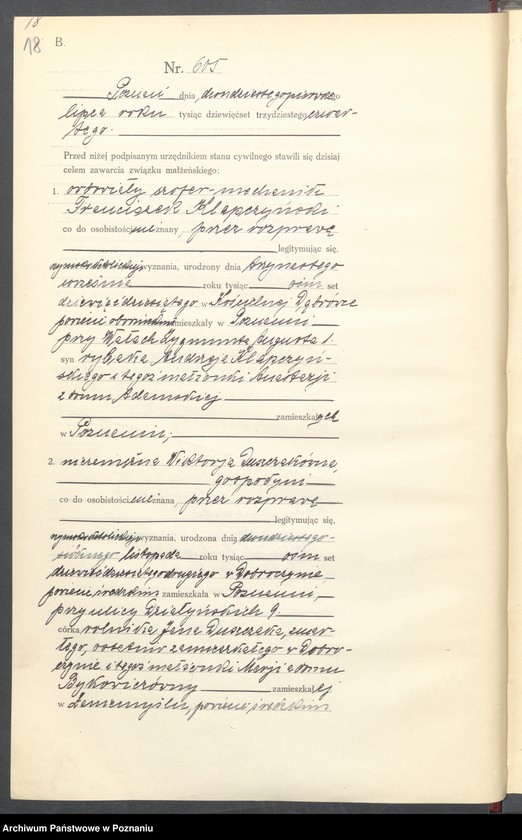 18
18 B.
Nr. 605
Poznań dnia dwudziestego pierwszego
lipca roku tysiąc dziewięćset trzydziestego czwar-
tego.
Przed niżej podpisanym urzędnikiem stanu cywilnego stawili się dzisiaj
celem zawarcia związku małżeńskiego:
1. owdowiały szofer-mechanik
Franciszek Klapczyński
co do osobistości nieznany, przez rozprawę
legitymując się,
rzymskokatolickiego wyznania, urodzony dnia trzynastego
września roku tysiąc osim set
dziewięćdziesiątego w Kościelnej Dąbrowie
powiecie obornickim zamieszkały w Poznaniu
przy Wałach Zygmunta Augusta 1.
syn rybaka Andrzeja Klapczyń-
skiego i tegoż małżonki Anastazji
z domu Adamskiej
zamieszkałych
w Poznaniu;
2. niezamężna Wiktorja Duszczakówna,
gospodyni
co do osobistości nieznana, przez rozprawę
legitymując się,
rzymskokatolickiego wyznania, urodzona dnia dwudziestego
listopada roku tysiąc osim set
dziewięćdziesiątego drugiego w Dobroczynie,
powiecie średzkim zamieszkała w Poznaniu,
przy ulicy Działyńskich 9.
córka rolnika Jana Duszczaka, zmar-
łego, ostatnio zamieszkałego w Dobro-
czynie i tegoż małżonki Marji z domu
Bykowiczówny zamieszkałej
w Zaniemyślu, powiecie średzkim
Archiwum Państwowe w Poznaniu